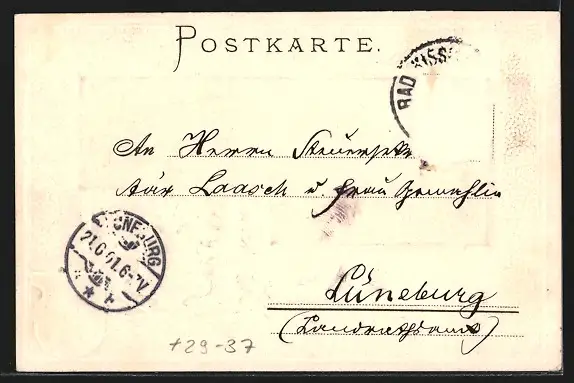 POSTKARTE.
BAD KISS
An Herrn Steuersekre
tär Laasch u. Frau Gemahlin
LÜNEBURG
21.6.01.6-7V
Lüneburg
(Landratsamt)
+29-37